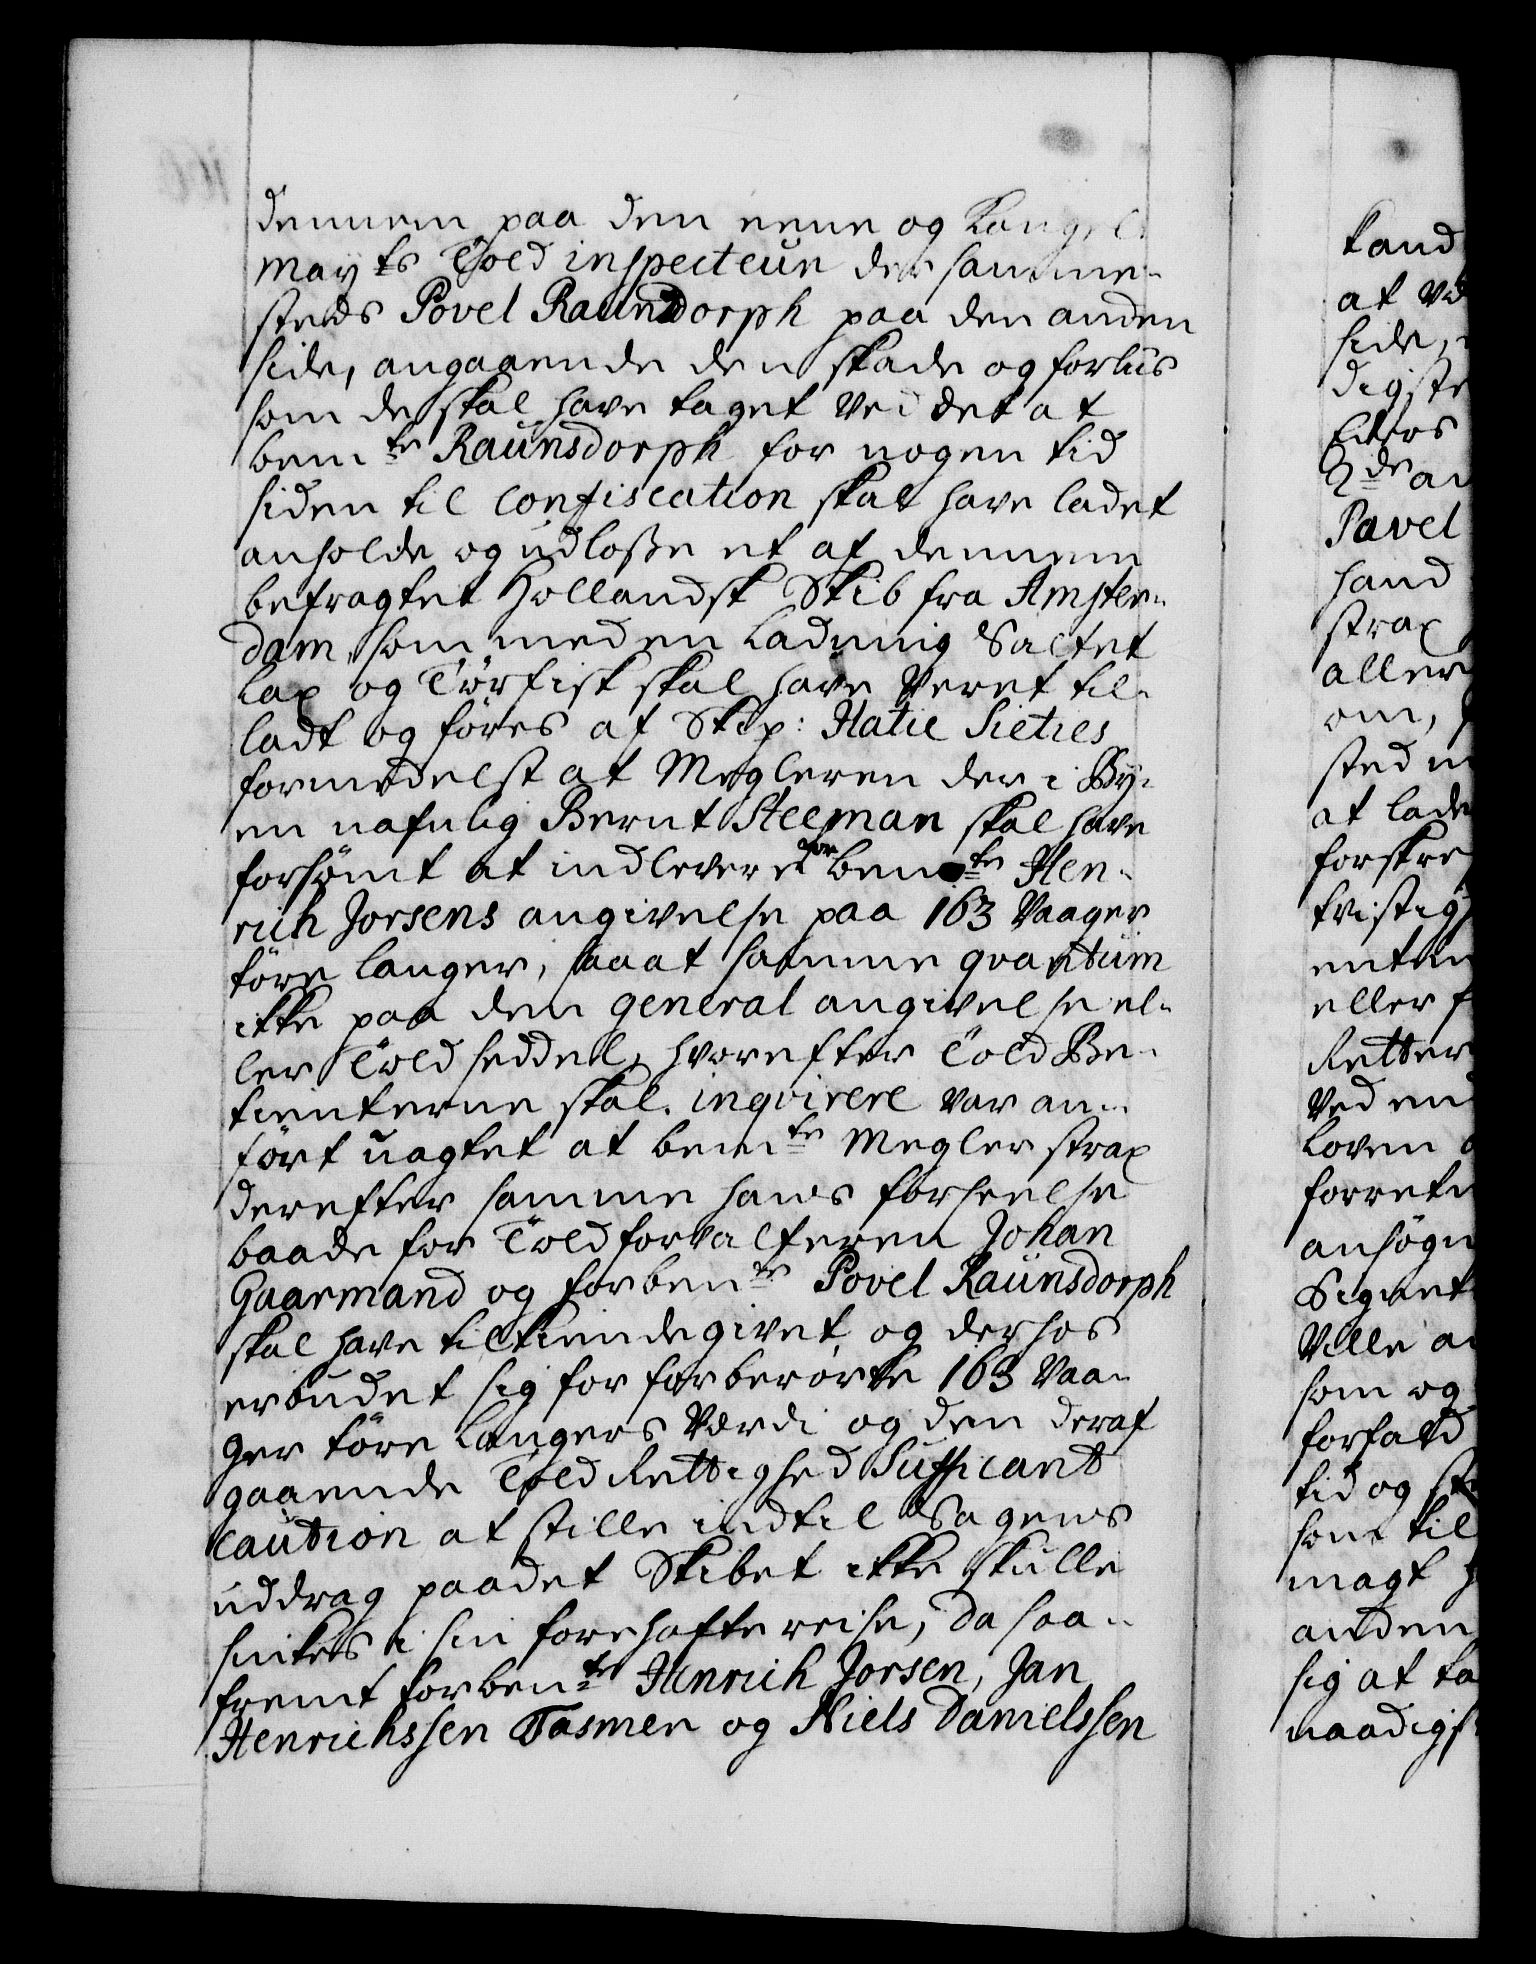 dennem paa den eene og Kongel.
Mayts Told inspecteur der samme-
steds Povel Raunsdorph paa den anden
side, angaaende den skade og forliis
som de skal have taget ved det at
bemte Raunsdorph for nogen tid
siden til Confiscation skal have ladet
anholde og udlosse et af dennem
befragtet Hollandsk Skib fra Amster-
dam, som med en Ladning Saltet
Lax og Tørfisk skal have veret til-
ladt og føres af Skip: Hatie Sieties
formedelst at Megleren der i By-
en nafnlig Bernt Steeman skal have
forsømt at indlevere for bemte Hen-
rich Jorsens angivelse paa 163 Vaager
tøre langer, saa at samme qvantum
ikke paa den general angivelse el-
ler Told seddel, hvorefter Told Be-
tienterne skal inqvirere var an-
ført uagtet at bemte Megler strax
derefter samme hans forseelse
baade for Toldforvalteren Johan
Gaarmand og forbente Povel Raunsdorph
skal have tilkiendegivet og derhos
erbudet sig for forberørte 163 Vaa-
ger tøre Langers Værdi og den deraf
gaaende Told Rettighed Sufficant
Caution at stille indtil Sagens
uddrag paa det Skibet ikke skulle
sinkes i sin forehafte reise, da saa-
fremt forbente Henrich Jorsen, Jan
Henrichssen Tasmer og Niels Danielssen
tand
at ved
side,
digste
Eiters
2de an
Pavel
hand
strax
aller
om,
sted
at lade
forskre
fristig
enten
eller f
Retter
ved en
Loven
forrete
ansøgn
Signet
Ville a
som og
forfald
tid og st
som til
magt
anden
sig at ta
naadigs